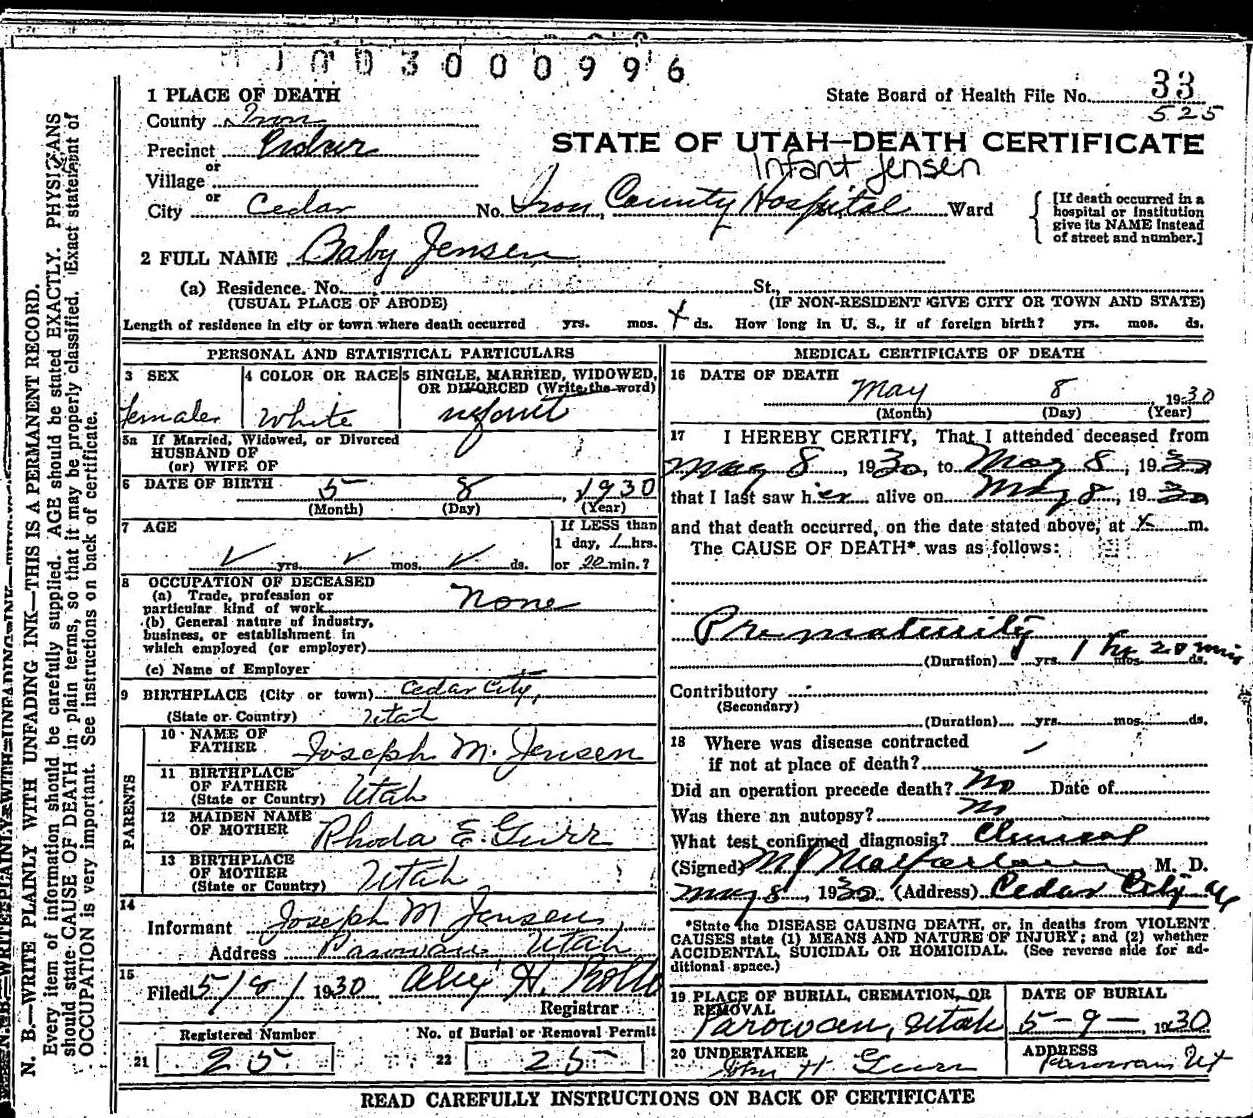 1003000996
State Board of Health File No. 33
525
1 PLACE OF DEATH
County Iron
STATE OF UTAH—DEATH CERTIFICATE
Precinct
Infant Jensen
or
Village
or
City Cedar No. Iron County Hospital Ward
[If death occurred in a
hospital or institution
give its NAME instead
of street and number.]
2 FULL NAME Baby Jensen
(a) Residence. No. St.,
(USUAL PLACE OF ABODE) (IF NON-RESIDENT GIVE CITY OR TOWN AND STATE)
Length of residence in city or town where death occurred yrs. mos. ds. How long in U. S., if of foreign birth? yrs. mos. ds.
PERSONAL AND STATISTICAL PARTICULARS
3 SEX
female
4 COLOR OR RACE
White
5 SINGLE, MARRIED, WIDOWED,
OR DIVORCED (Write the word)
infant
5a If Married, Widowed, or Divorced
HUSBAND OF
(or) WIFE OF
6 DATE OF BIRTH 5 8, 1930
(Month) (Day) (Year)
7 AGE
yrs. mos. ds.
If LESS than
1 day, 1 hrs.
or 20 min.?
8 OCCUPATION OF DECEASED
(a) Trade, profession or
particular kind of work None
(b) General nature of industry,
business, or establishment in
which employed (or employer)
(c) Name of Employer
9 BIRTHPLACE (City or town) Cedar City,
(State or Country) Utah
PARENTS
10 NAME OF
FATHER Joseph M. Jensen
11 BIRTHPLACE
OF FATHER
(State or Country) Utah
12 MAIDEN NAME
OF MOTHER Rhoda E. Gurr
13 BIRTHPLACE
OF MOTHER
(State or Country) Utah
14
Informant Joseph M Jensen
Address Parowan, Utah
15
Filed 5/8/1930 H.
Registrar
Registered Number
21 25
No. of Burial or Removal Permit
22 25
MEDICAL CERTIFICATE OF DEATH
16 DATE OF DEATH
May 8, 1930
(Month) (Day) (Year)
17 I HEREBY CERTIFY, That I attended deceased from
May 8, 1930, to May 8, 1930
that I last saw her alive on May 8, 1930
and that death occurred, on the date stated above, at m.
The CAUSE OF DEATH* was as follows:
Prematurity
(Duration) yrs. 1 hr 20 min mos. ds.
Contributory
(Secondary)
(Duration) yrs. mos. ds.
18 Where was disease contracted
if not at place of death?
Did an operation precede death? No Date of
Was there an autopsy? no
What test confirmed diagnosis? Clinical
(Signed) M J Macfarlane M. D.
May 8, 1930 (Address) Cedar City U
*State the DISEASE CAUSING DEATH, or, in deaths from VIOLENT
CAUSES state (1) MEANS AND NATURE OF INJURY; and (2) whether
ACCIDENTAL, SUICIDAL OR HOMICIDAL. (See reverse side for ad-
ditional space.)
19 PLACE OF BURIAL, CREMATION, OR
REMOVAL
Parowan, Utah
DATE OF BURIAL
5-9-, 1930
20 UNDERTAKER
John H Gurr
ADDRESS
Parowan Ut
READ CAREFULLY INSTRUCTIONS ON BACK OF CERTIFICATE
N. B.—WRITE PLAINLY WITH UNFADING INK—THIS IS A PERMANENT RECORD.
Every item of information should be carefully supplied. AGE should be stated EXACTLY. PHYSICIANS
should state CAUSE OF DEATH in plain terms, so that it may be properly classified. Exact statement of
OCCUPATION is very important. See instructions on back of certificate.